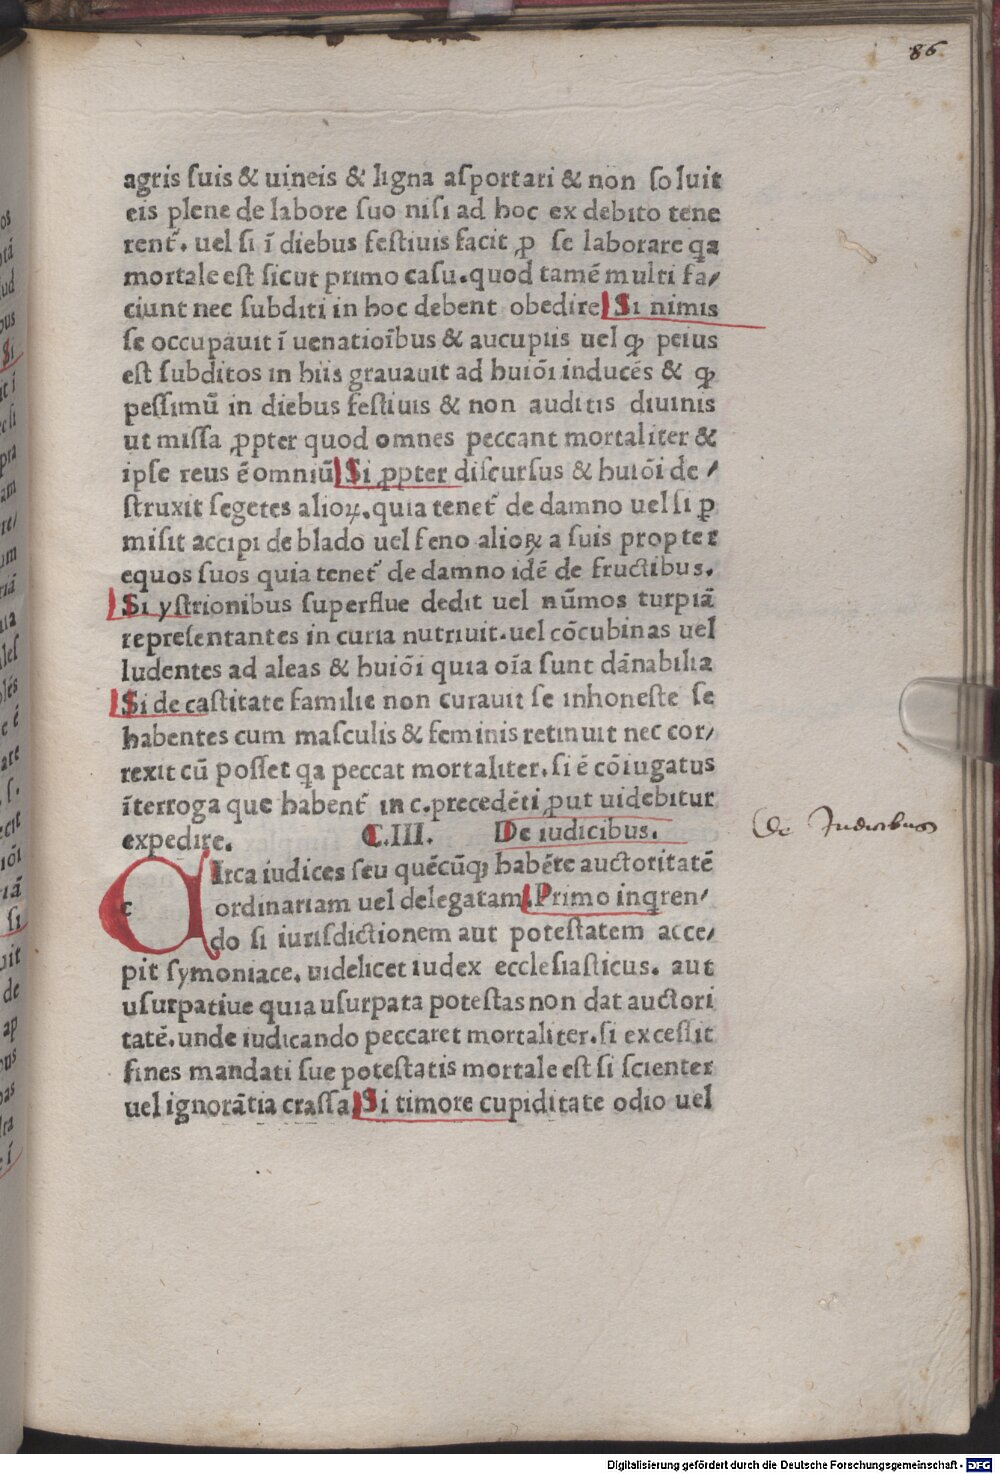 86
agris ſuis & uineis & ligna aſportari & non ſoluit
eis plene de labore ſuo niſi ad hoc ex debito tene
rent᷑. uel ſi ī diebus feſtiuis facit ꝓ ſe laborare qa
mortale eſt ſicut primo caſu. quod tamē multi fa/
ciunt nec ſubditi in hoc debent obedire Si nimis
ſe occupauit ī uenatioībus & aucupiis uel ꝙ peius
eſt ſubditos in hiis grauauit ad huiōi inducēs & ꝙ
peſſimū in diebus feſtiuis & non auditis diuinis
ut miſſa ꝓpter quod omnes peccant mortaliter &
ipſe reus ē omniū Si ꝓpter diſcurſus & huiōi de /
ſtruxit ſegetes alioꝝ. quia tenet᷑ de damno uel ſi ꝑ
miſit accipi de blado uel feno alioꝝ a ſuis propter
equos ſuos quia tenet᷑ de damno idē de fructibus.
Si yſtrionibus ſuperflue dedit uel nūmos turpiā
repreſentantes in curia nutriuit. uel cōcubinas uel
ludentes ad aleas & huiōi quia oīa ſunt dānabilia
Si de caſtitate familie non curauit ſe inhoneſte ſe
habentes cum maſculis & feminis retinuit nec cor/
rexit cū poſſet qa peccat mortaliter. ſi ē cōiugatus
īterroga que habent᷑ in c. precedēti ꝓut uidebitur
expedire. C.III. De iudicibus.
De Iudicibus
cIrca iudices ſeu quēcūqꝫ habēte auctoritatē
ordinariam uel delegatam. Primo inqren/
do ſi iuriſdictionem aut poteſtatem acce/
pit ſymoniace. uidelicet iudex eccleſiaſticus. aut
uſurpatiue quia uſurpata poteſtas non dat auctori
tatē. unde iudicando peccaret mortaliter. ſi exceſſit
fines mandati ſue poteſtatis mortale eſt ſi ſcienter
uel ignorātia craſſa Si timore cupiditate odio uel
Digitalisierung gefördert durch die Deutsche Forschungsgemeinschaft - DFG